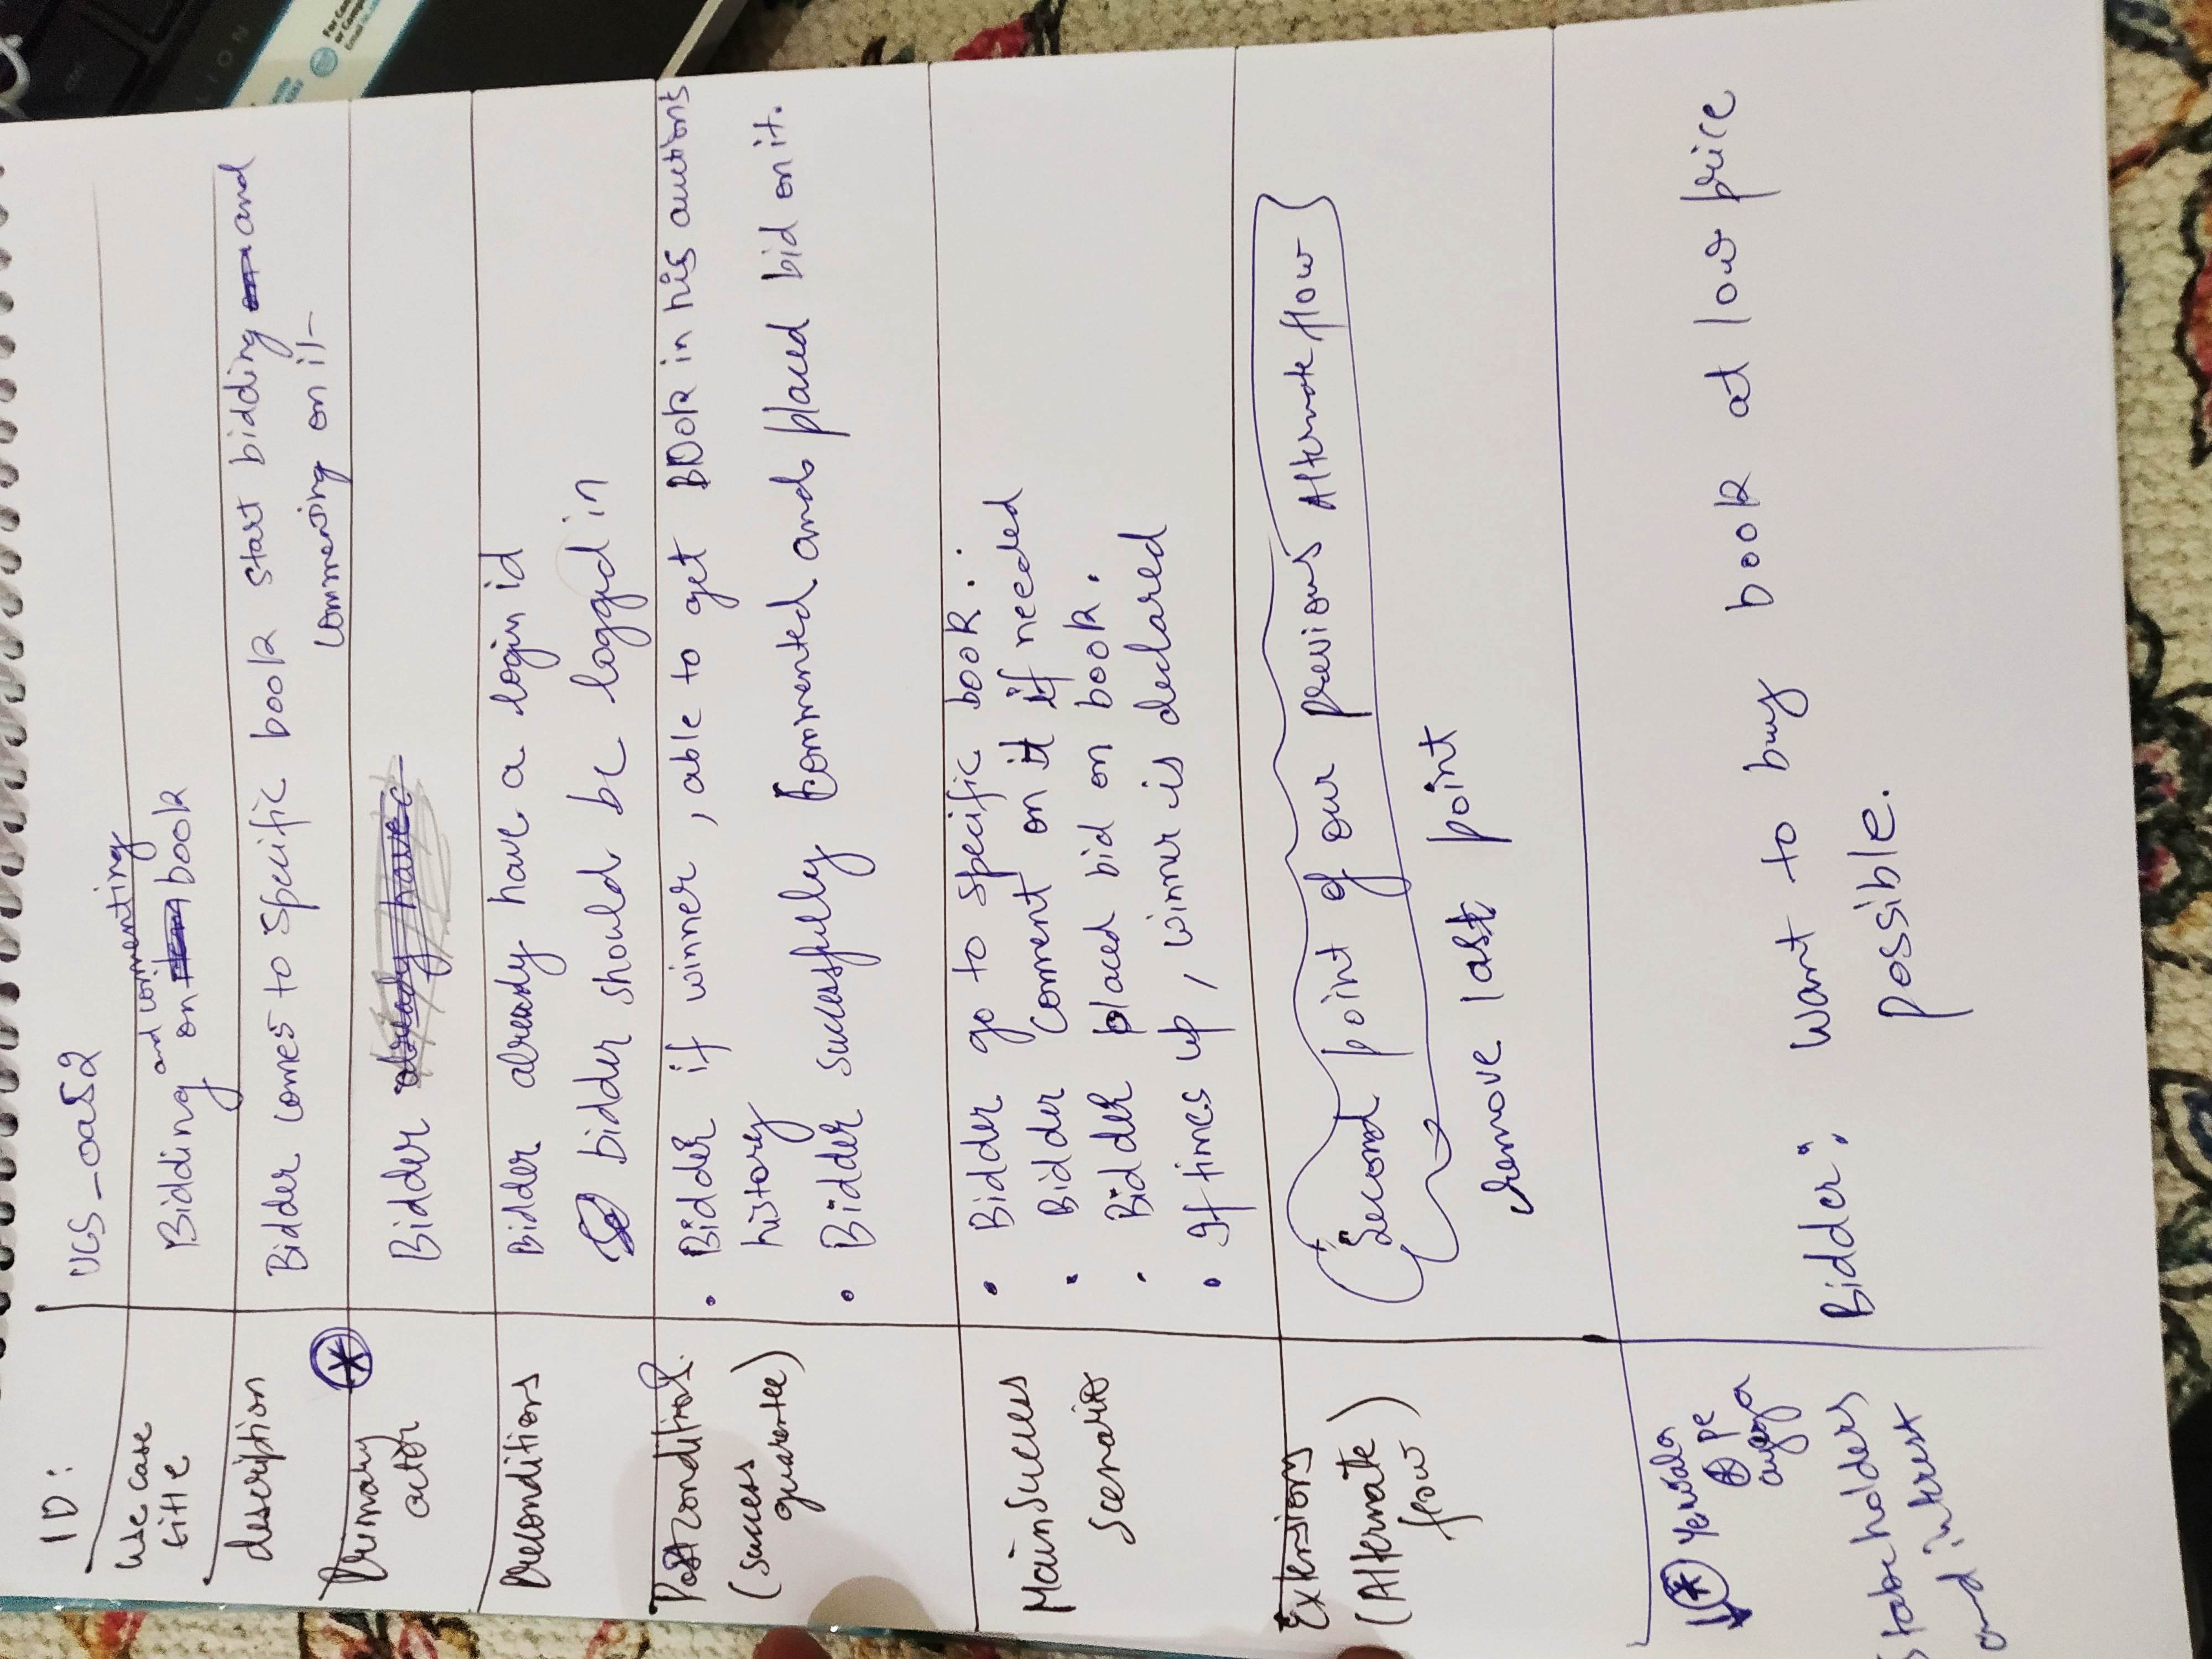 ID:
UCS_oa52
Use case
title
and commenting
Bidding on book
description
Bidder comes to specific book start bidding and
commenting on it
Primary
actor
Bidder already have
Preconditions
Bidder already have a login id
bidder should be logged in
Postcondition
(success
guarentee)
• Bidder if winner, able to get BOOK in his auctions
history
• Bidder successfully commented and placed bid on it.
Main Success
Scenario
• Bidder go to specific book.
• Bidder comment on it if needed
• Bidder placed bid on book.
• If times up, winner is declared
Extensions
(Alternate
flow)
Second point of our previous Alternate flow
remove last point
Ye wala
pe
ayega
Stakeholders
and intrest
Bidder: Want to buy book at low price
possible.